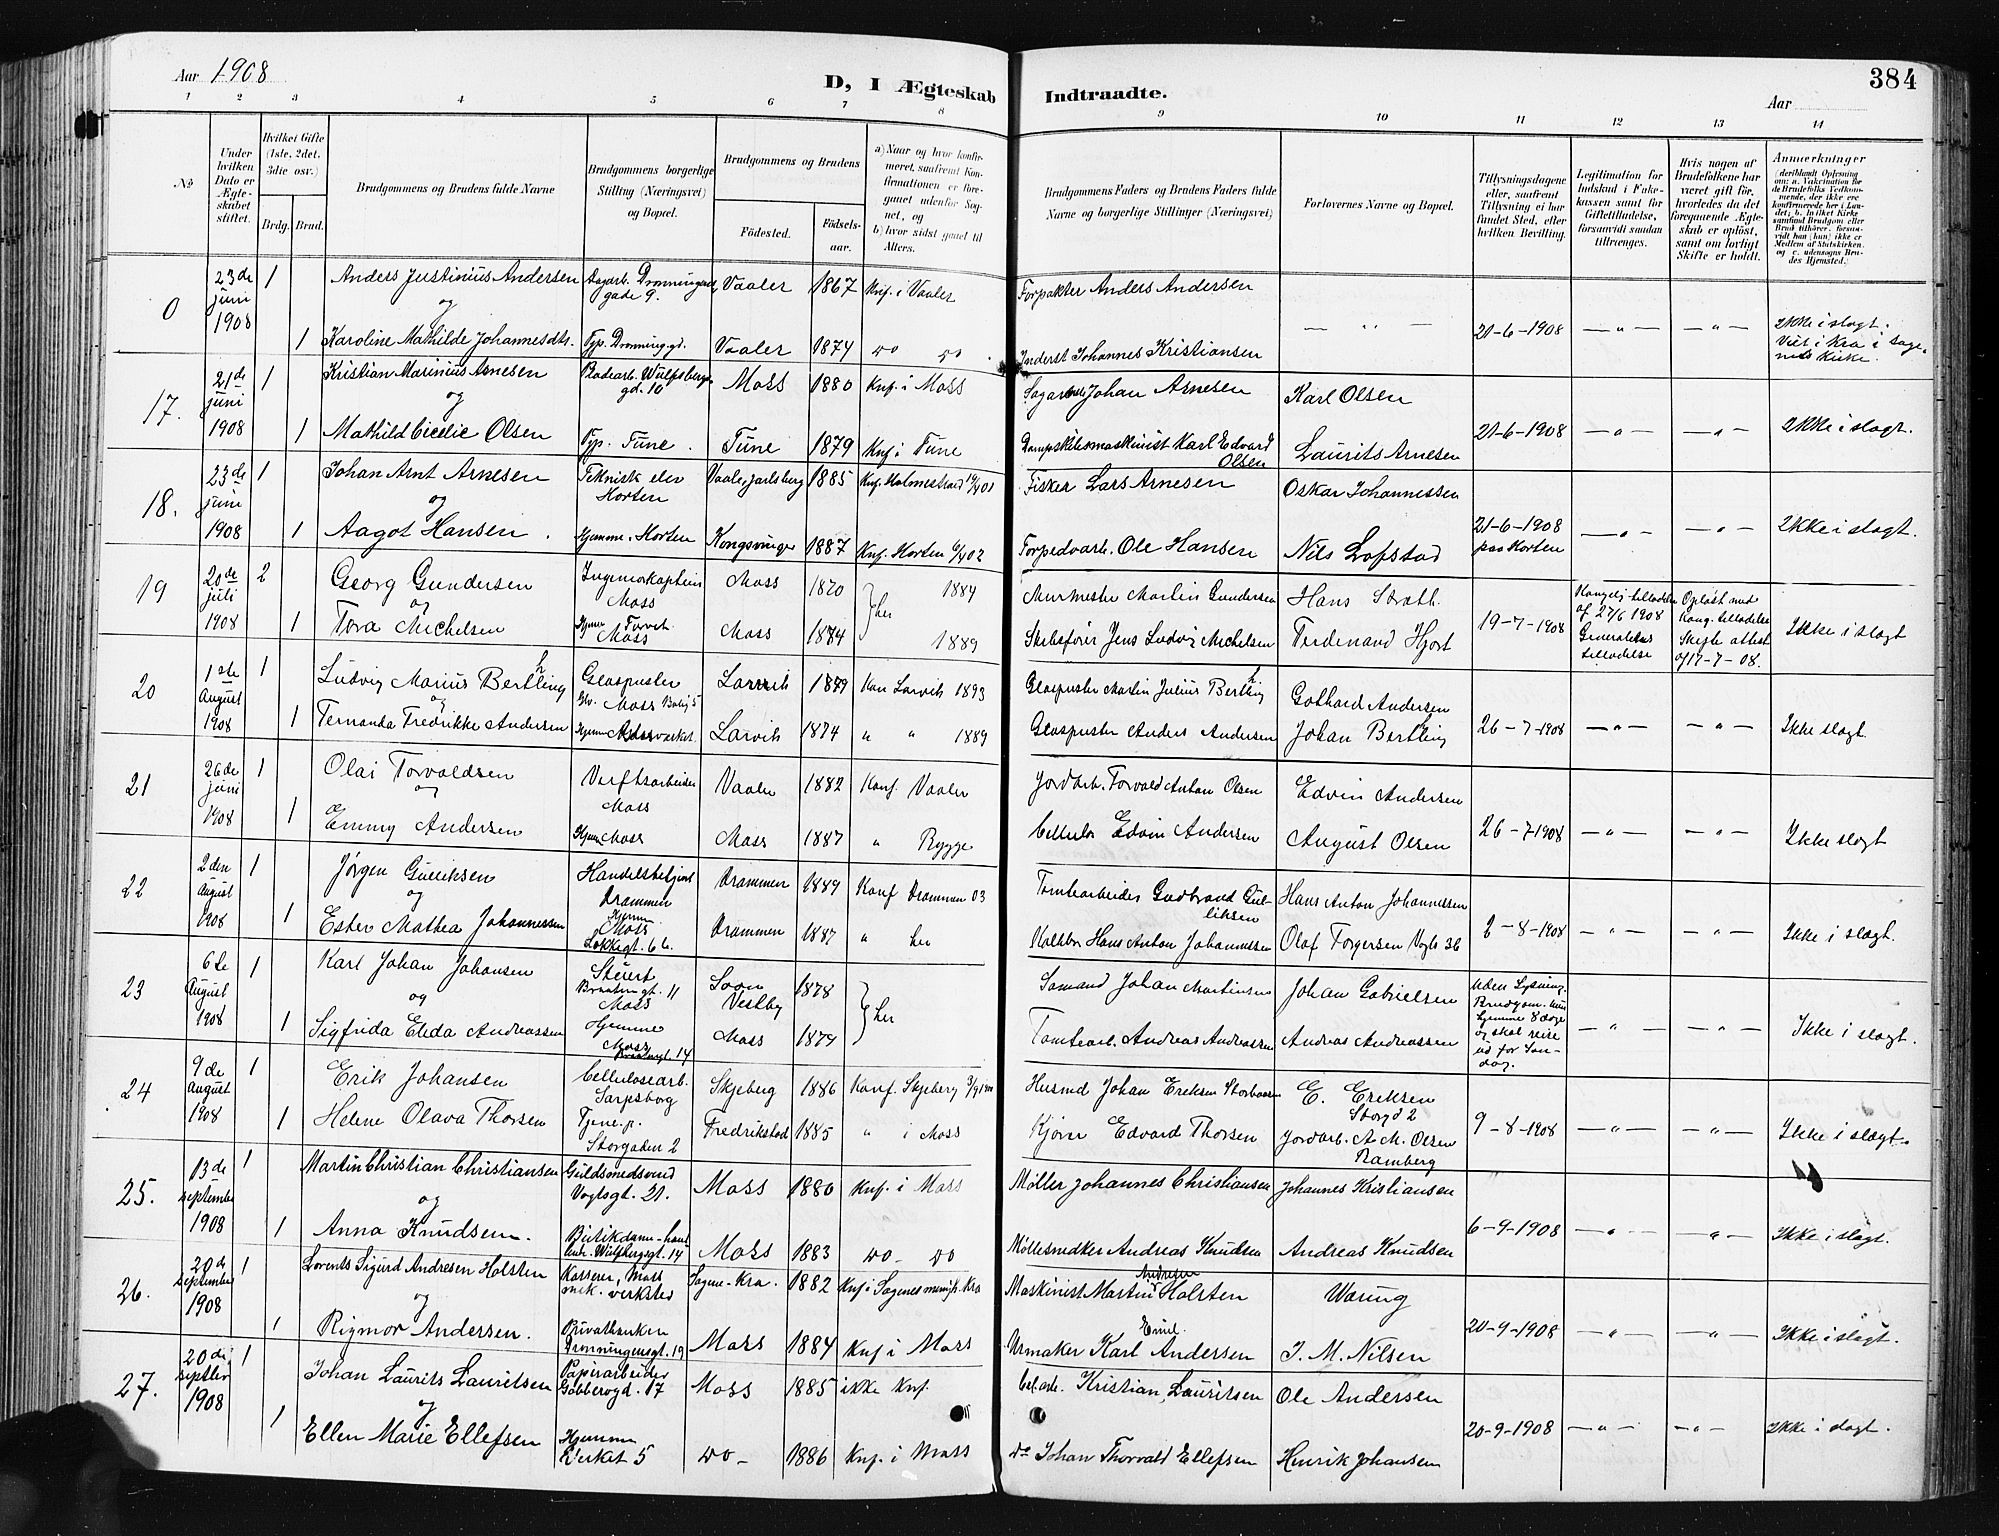 Aar 1908
D, I Ægteskab Indtraadte.
Aar
384
1 2 3 4 5 6 7 8 9 10 11 12 13 14
No
Under hvilken Dato er Ægteskabet stiftet.
Hvilket Gifte (1ste, 2det, 3die osv.)
Brdg. Brud.
Brudgommens og Brudens fulde Navne
Brudgommens borgerlige Stilling (Næringsvei) og Bopæl.
Brudgommens og Brudens
Födested. Födselsaar.
a) Naar og hvor konfirmeret, saafremt Konfirmationen er foregaaet udenfor Sognet, og
b) hvor sidst gaaet til Alters.
Brudgommens Faders og Brudens Faders fulde Navne og borgerlige Stillinger (Næringsvei)
Forlovernes Navne og Bopæl.
Tillysningsdagene eller, saafremt Tillysning ei har fundet Sted, efter hvilken Bevilling.
Legitimation for Indskud i Enkekassen samt for Giftetilladelse, forsaavidt saadan tiltrænges.
Hvis nogen af Brudefolkene har været gift för, hvorledes da det foregaaende Ægteskab er oplöst, samt om lovligt Skifte er holdt.
Anmærkninger (deriblandt Oplysning om: a. Vakcination for de Brudefolks Vedkommende, der ikke ere konfirmerede her i Landet; b. hvilket Kirkesamfund Brudgom eller Brud tilhörer, forsaavidt han (hun) ikke er Medlem af Statskirken, og c. udensogns Brudes Hjemsted.)
0 23de juni 1908 1 Anders Justinius Andersen Dagarb. Dronningensgade 9. Vaaler 1867 Knf. i Vaaler Forpakter Anders Andersen
og
1 Karoline Mathilde Johannesdtr. Typ. Dronning.gd. Vaaler 1874 do do. Inderst Johannes Kristiansen — " — 21-6-1908 — " — — " — Ikke i slægt. Viet i Kra i Sagenes Kirke.
17. 21de juni 1908 1 Kristian Marinius Arnesen Pladearb. Wulfsbergs gd. 10 Moss 1880 Knf. i Moss Sagarbeid Johan Arnesen Karl Olsen
og
1 Mathild Cicelie Olsen Typ. Tune. Tune 1879 Knf. i Tune Dampskibsmaskinist Karl Edvard Olsen Laurits Arnesen 21-6-1908 — " — — " — Ikke i slægt.
18. 23de juni 1908 1 Johan Arnt Arnesen Teknisk elev Horten Vaale, Jarlsberg 1885 Knf. Holmestrand 1901 Fisker Lars Arnesen Oskar Johannessen
og
1 Aagot Hansen. Hjemme. Horten Kongsvinger 1887 Knf. Horten 6/4 02 Torpedoarb. Ole Hansen Nils Lofstad 21-6-1908 paa Horten — " — — " — Ikke i slægt.
19 20de juli 1908 2 Georg Gundersen Ingeniørkaptein Moss Moss 1870 her 1884 Murmester Martin Gundersen Hans Strøth
og
1 Tora Michelsen Hjem. Torvet. Moss Moss 1874 1889 Skibsfører Jens Ludvig Michelsen Ferdinand Hjort 19-7-1908 Kongelig tilladelse af 27/6 1908 Generalitets tilladelse Opløst med Kong. tilladelse Skifte attest af 17-7-08. Ikke i slægt
20 1ste August 1908 1 Ludvig Marius Berthling Glaspuster Moss Larvik 1879 Kon Larvik 1893 Glaspuster Martin Julius Berthling Gothard Andersen
og
1 Fernanda Fredrikke Andersen Hjemme Larvik 1874 " " 1889 Glaspuster Anders Andersen Johan Berthling 26-7-1908 — " — — " — Ikke slægt.
21 26de juni 1908 1 Olai Torvaldsen Verftsarbeider Moss Vaaler 1882 Konf. Vaaler Jordarb. Torvald Anton Olsen Edvin Andersen
og
1 Emmy Andersen Hjem Moss Moss 1887 " Rygge Cellulo Edvin Andersen August Olsen 26-7-1908 — " — — " — Ikke slægt
22 2den August 1908 1 Jørgen Gulliksen Handelsbetjent Drammen Drammen 1889 Konf Drammen 03 Tomtearbeider Gudbrand Gulliksen Hans Anton Johannessen
og
1 Ester Mathea Johannessen Hjem Moss Løkkegt. 66. Drammen 1887 " her Hans Anton Johannessen Olaf Torgersen Vogts 36 2-8-1908 — " — — " — Ikke i slægt.
23 6te August 1908 1 Karl Johan Johansen Stuert Braatengt. 11 Moss Soon Vestby 1878 her Sømand Johan Martinsen Johan Gabrielsen
og
1 Sigfrida Elida Andreassen Hjemme Moss Moss 1879 Tomtearb. Andreas Andreassen Andreas Andreassen Uden lysning. Brudgom. kun hjemme 8 dage og skal reise ud før Søndag. — " — — " — Ikke i slægt.
24 9de August 1908 1 Erik Johansen Cellulosearb. Sarpsborg Skjeberg 1886 Konf. Skjeberg 3/9 1900 Husmd Johan Eriksen E. Eriksen Storgd 2
1 Helene Olava Thorsen Tjene.p. Storgaden 2 Fredrikstad 1885 " i Moss Kjører Edvard Thorsen Jordarb. A. M. Olsen Ramberg 9-8-1908 — " — — " — Ikke i slægt.
25. 13de september 1908 1 Martin Christian Christiansen Guldsmedsvend Vogtsgt. 21. Moss 1880 Knf. i Moss Møller Johannes Christiansen Johannes Kristiansen
og
1 Anna Knudsen. Butikdame Wulfsbergsgt. 14 Moss 1883 do - do Møllesnedker Andreas Knudsen Andreas Knudsen 6-9-1908 — " — — " — Ikke i slægt.
26. 20de september 1908 1 Lorents Sigurd Andresen Holsten Kasserer, Moss mek. verksted Sagene - Kra. 1882 Knf. i Sagenes menigh. Kra Maskinist Martin Andresen Holsten Waring
og
1 Rigmor Andersen. Privatbanken Dronningensgt. 19 Moss 1884 Knf. i Moss Urmaker Karl Emil Andersen J. M. Nilsen 20-9-1908 — " — — " — Ikke i slægt.
27. 20de septber 1908 1 Johan Laurits Lauritsen Papirarbeider Gabbersgd. 17 Moss 1885 ikke Knf. Cel. arb. Kristian Lauritsen Ole Andersen
og
1 Ellen Marie Ellefsen Hjemme Verket 5 do - 1886 Knf. i Moss do Johan Thorvald Ellefsen Henrik Johansen 20-9-1908 — " — — " — Ikke i slægt.